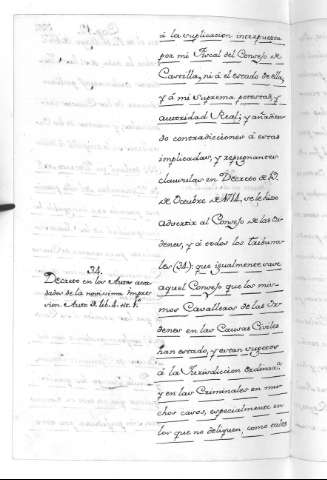 á la suplicacion interpuesta
por mi Fiscal del Consejo de
Castilla, ni á el estado de ella,
y á mi Suprema potestad, y
autoridad Real; y añadien
do contradicciones á estas
implicadas, y repugnantes
clausulas en Decreto de
de Octubre de 1714, se le hizo
advertir al Consejo de las Or
denes, y á todos los tribuna
les (34): que igualmente save
aquel Consejo que los mis
mos Cavalleros de las Or
denes en las Causas Civiles
han estado, y estan sugetos
á la Jurisdiccion Ordinar.ª
y en las Criminales en mu
chos casos, especialmente en
los que no deliquen, como tales
34.
Decreto en los Autos acor
dados de la novisima impre
sion Auto